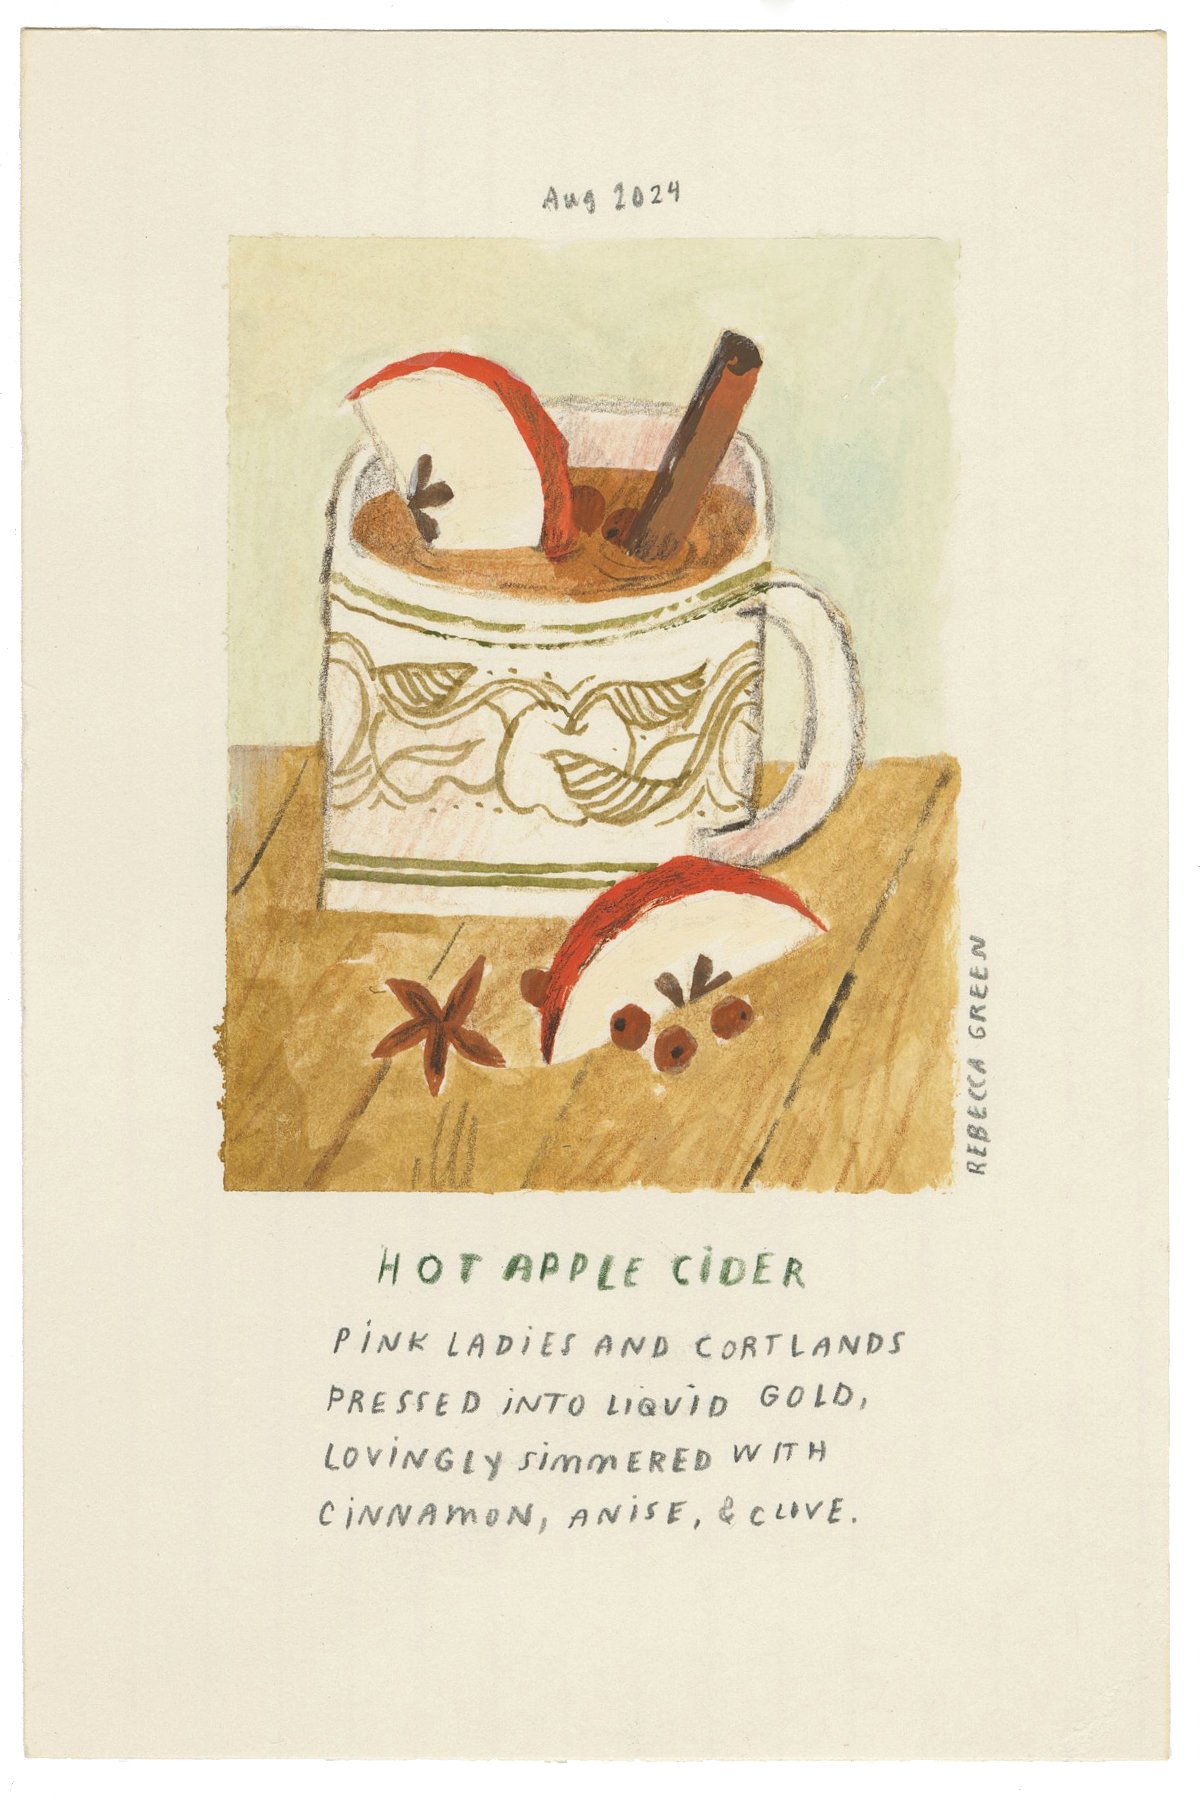 Aug 2024
REBECCA GREEN
HOT APPLE CIDER
PINK LADIES AND CORTLANDS
PRESSED INTO LIQUID GOLD,
LOVINGLY SIMMERED WITH
CINNAMON, ANISE, & CLOVE.